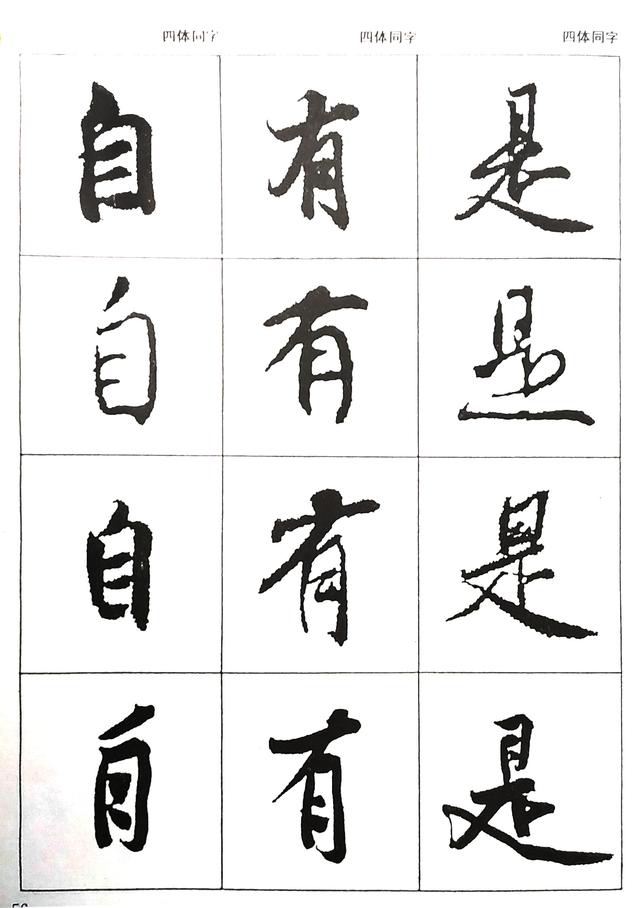 四体同字 四体同字 四体同字
自 有 是
自 有 是
自 有 是
自 有 是